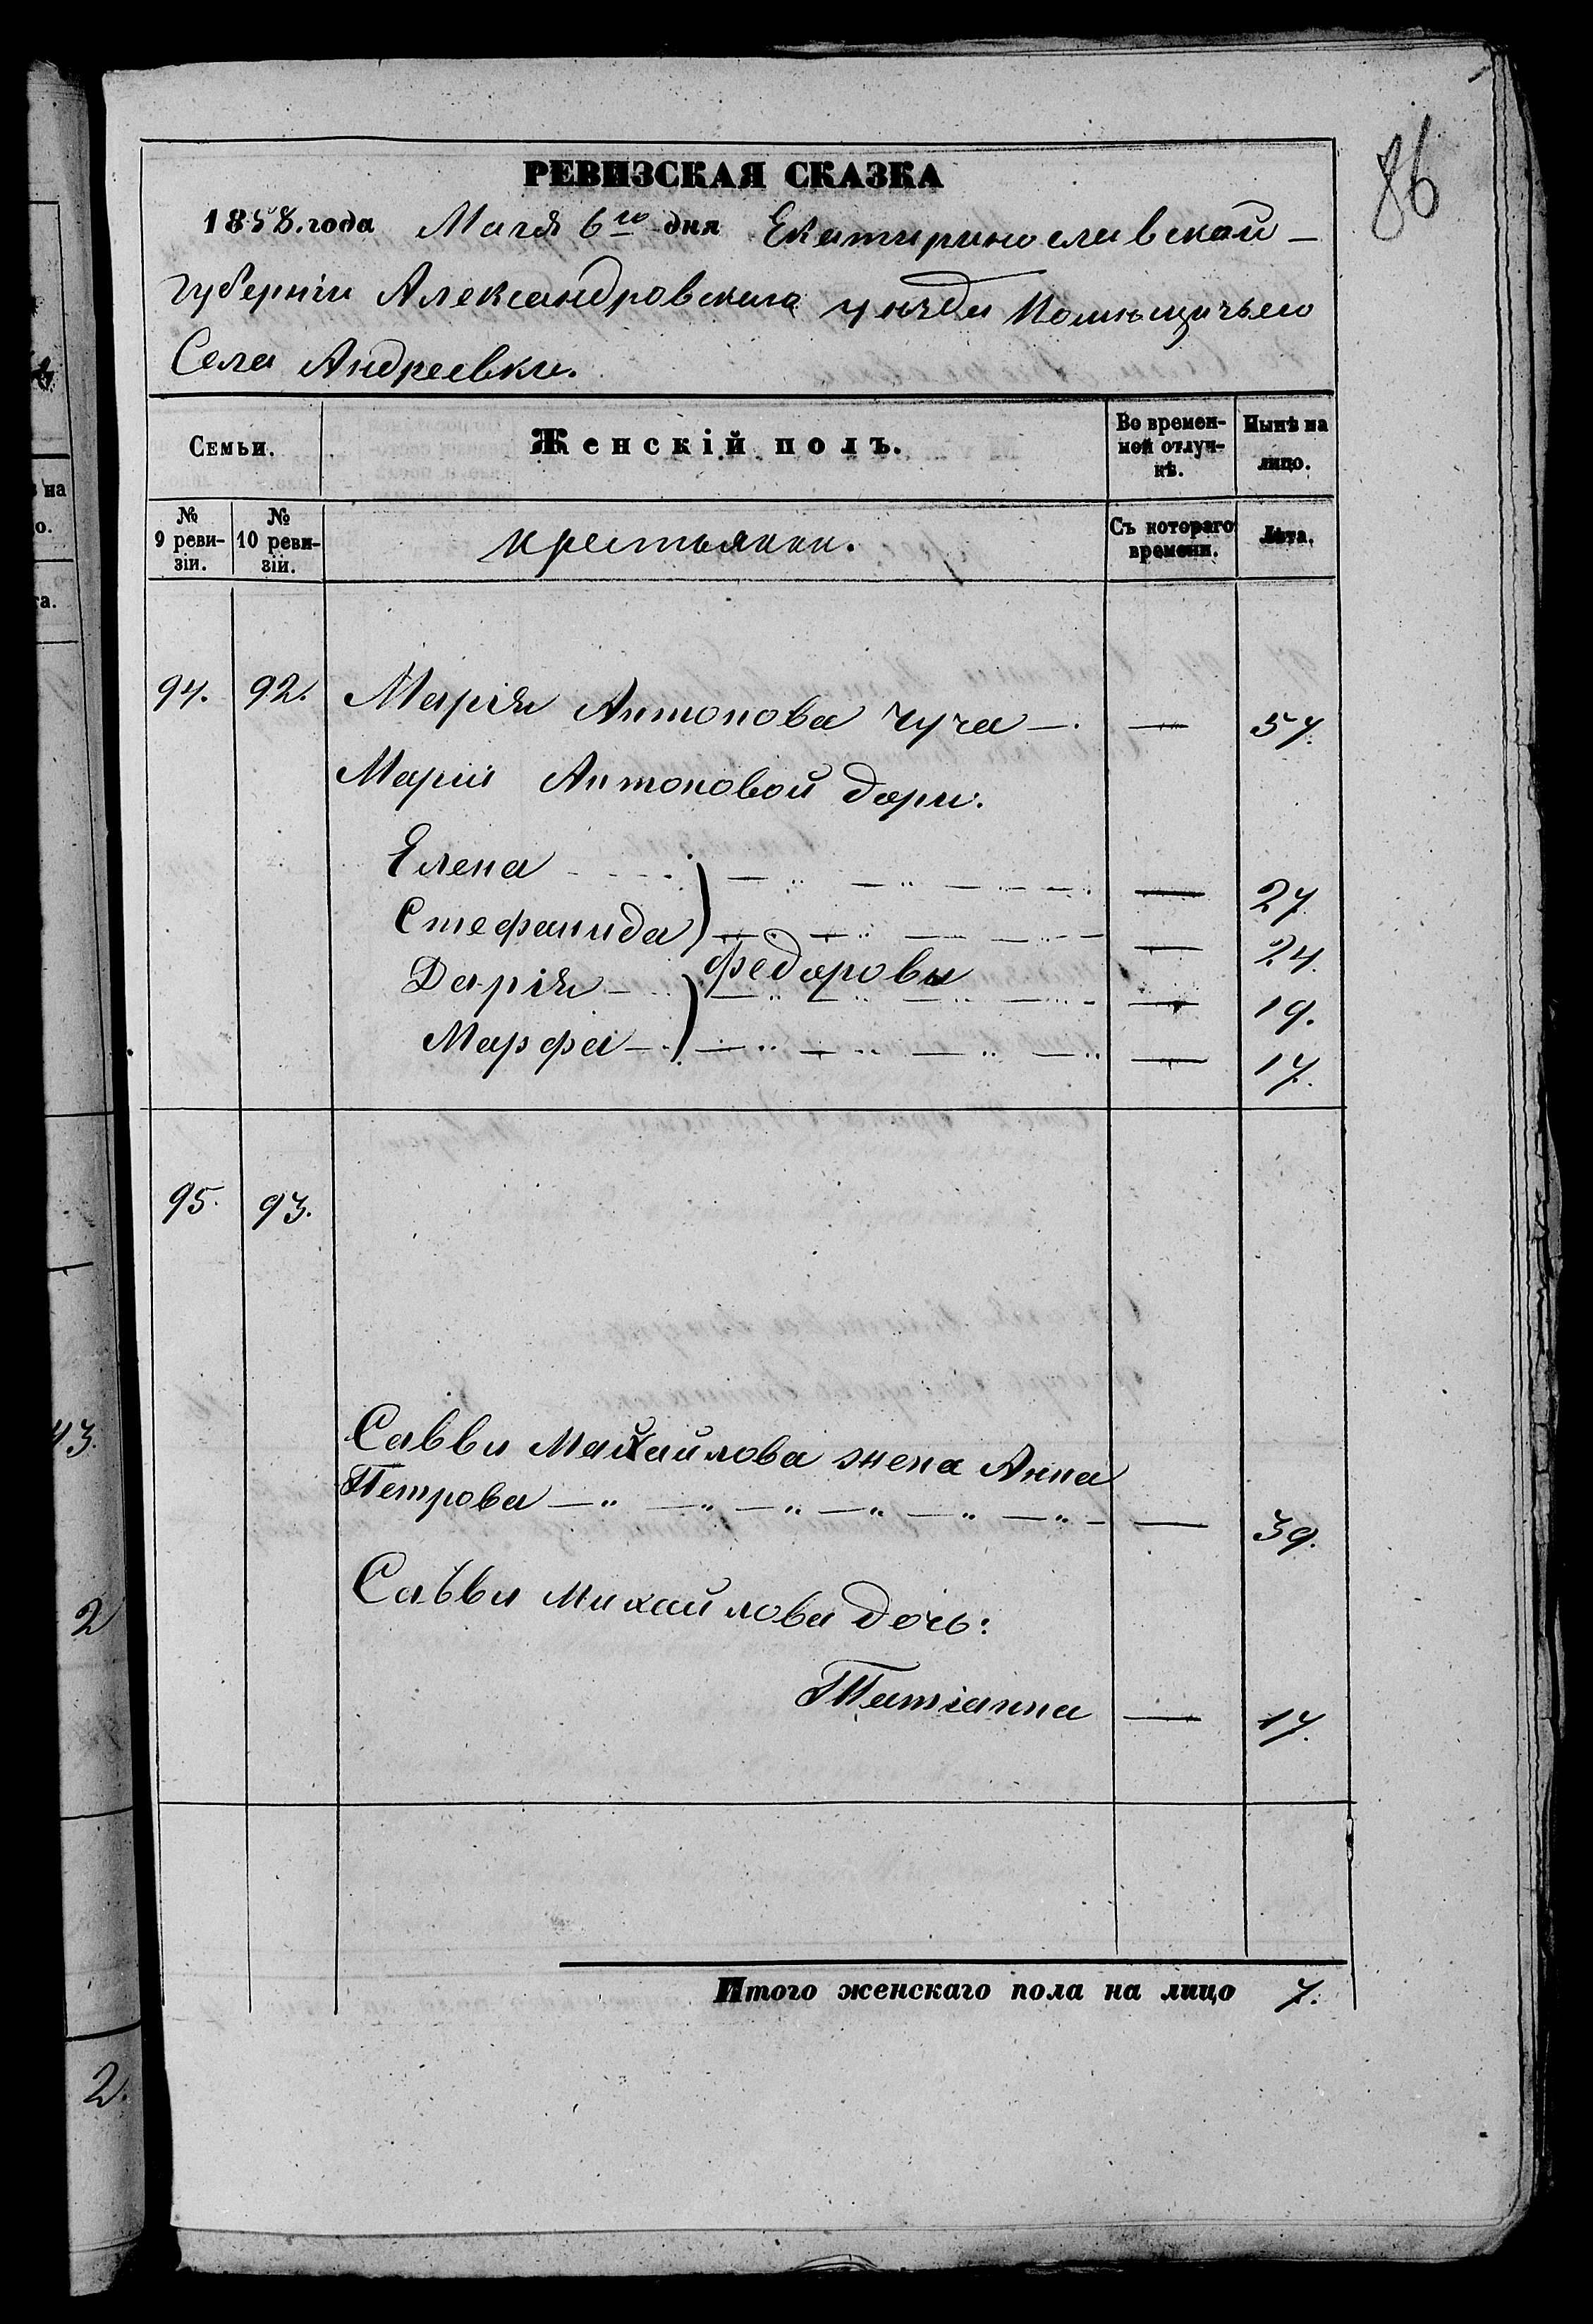 86
РЕВИЗСКАЯ СКАЗКА
1858.года Маія 6го дня Екатеринославской
губерніи Александровскаго уѣзда Помѣщичьего
Села Андреевки.
Семьи.
Женскій полъ.
Во времен-
ной отлуч-
кѣ.
Нынѣ на
лицо.
№
9 реви-
зіи.
№
10 реви-
зіи.
крестьянки.
Съ котораго
времени.
Лѣта.
94. 92. Марія Антонова Чуча — 57.
Маріи Антоновой дори:
Елена — 27
Стефанида — 24.
Федоровы
Дарія — 19.
Марфа — 17.
95. 93.
Саввы Михайлова жена Анна
Петрова — 39.
Саввы Михайлова дочь:
Татіанна — 17.
Итого женскаго пола на лицо 7.
на
о.
та.
43.
2
2.